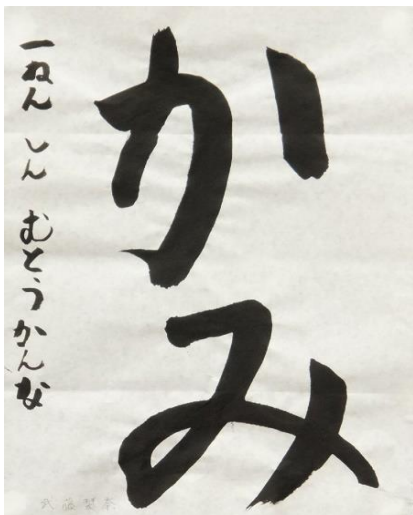 かみ
一ねん しん むとうかんな